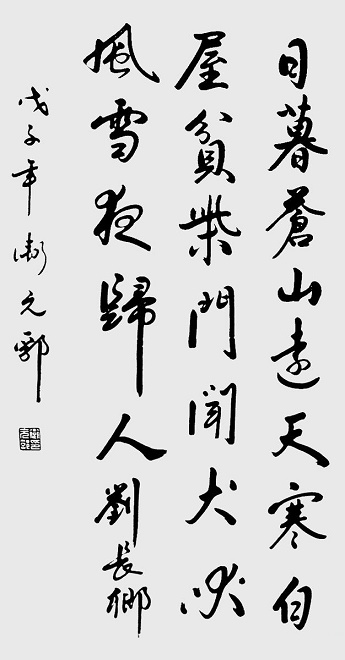 日暮蒼山遠天寒白
屋貧柴門聞犬吠
風雪夜歸人劉長卿
戊子年